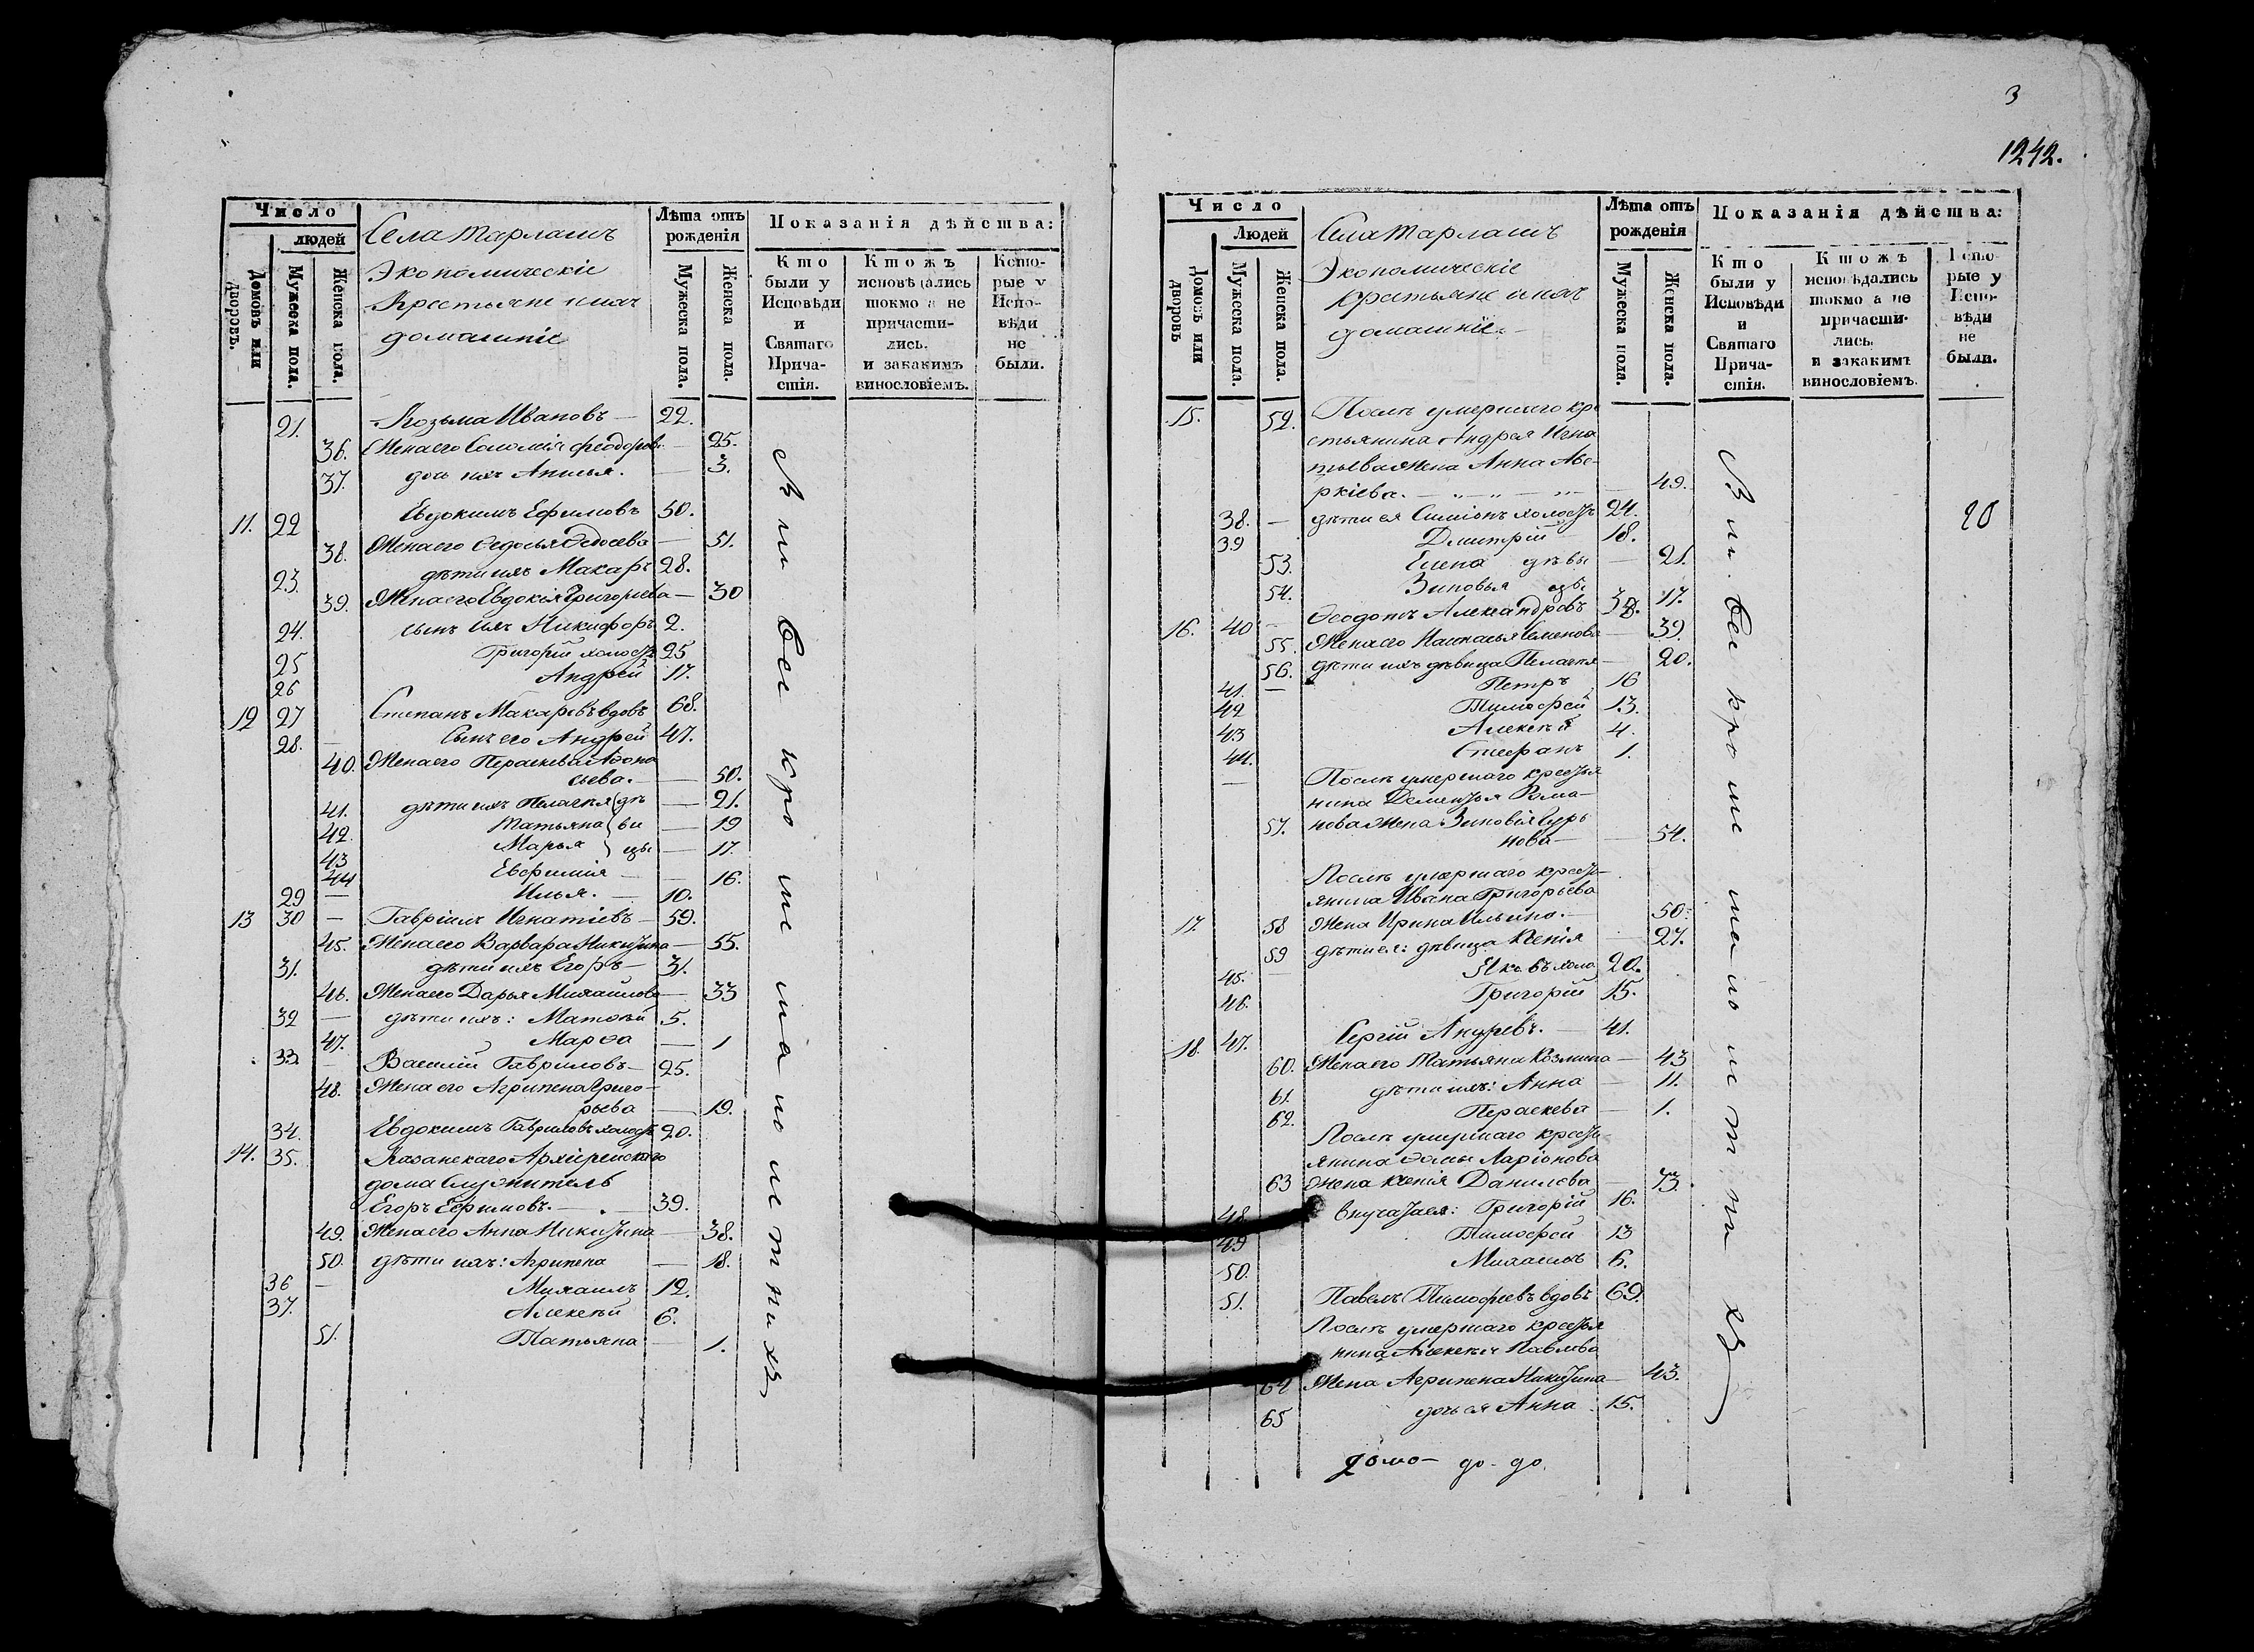 Число
людей
Домовъ или дворовъ.
Мужеска пола.
Женска пола.
Села Тарлашъ
Экономическіе
Крестьяне и ихъ
домашніе
Лѣта отъ рожденія
Мужеска пола.
Женска пола.
Показанія дѣйства:
Кто были у Исповѣди и Святаго Прича-стія.
Ктожъ исповѣдались токмо а не причасти-лись. и закакимъ винословіемъ.
Кото-рые у Испо-вѣди не были.
21. Козьма Ивановъ — 22.
36. Жена его Соломія Феодорова — 25.
37. дочь ихъ Анисья. — 3.
11. 22 Евдокимъ Ефимовъ 50.
38. Жена его Ѳедосья Ѳедосеева — 51.
23. дѣти ихъ Макаръ 28.
39. Жена его Евдокія Григорьева — 30
24. сынъ ихъ Никифоръ 2.
25 Григорій холостъ 25
26 Андрей 17.
12 27 Степанъ Макаровъ вдовъ 68.
28. — Сынъ его Андрей 47.
40. Жена его Пераскева Аѳона
сьева. — 50.
41. дѣти ихъ Пелагея (дѣ — 21.
42. Татьяна (ви — 19
43 Марья ) цы — 17.
44 Евфимія — 16.
29 — Илья. — 10.
13 30 — Гавріилъ Игнатіевъ — 59.
45. Жена его Варвара Никитина — 55.
31. дѣти ихъ Егоръ — 31.
46. Жена его Дарья Михайлова — 33
32 — дѣти ихъ: Матвѣй 5.
47. Марѳа — 1
33. — Василій Гавриловъ — 25.
48. Жена его Агрипена Григо-
рьева — 19.
34. Евдокимъ Гавриловъ холостъ 20.
14. 35. Казанскаго Архіерейскаго
дома служитель
Егоръ Ефимовъ. — 39.
49. Жена его Анна Никитина — 38.
50. дѣти ихъ: Агрипена — 18.
36 — Михаилъ 12.
37. Алексѣй 6.
51. Татьяна — 1.
вси кроме малолетнихъ
3
1242.
Число
Людей
Домовъ или дворовъ
Мужеска пола.
Женска пола.
Села Тарлашъ
Экономическіе
крестьяне и ихъ
домашніе. —
Лѣта отъ рожденія
Мужеска пола.
Женска пола.
Показанія дѣйства:
Кто были у Исповѣди и Святаго Прича-стія.
Ктожъ исповѣдались токмо а не причасти-лись. и закакимъ винословіемъ.
Кото-рые у Испо-вѣди не были.
15. 52. Послѣ умершаго кре
стьянина Андрея Игна
тьева жена Анна Аве-
ркіева. — 49.
38. — дѣти ея Симіонъ холостъ 24. 20
39 Дмитрій 18.
53. Елена дѣви — 21.
54. Зиновья цы 17.
16. 40 — Ѳеодотъ Александровъ 38.
55. Жена его Настасья Семенова — 39.
56. дѣти ихъ дѣвица Пелагея — 20.
41. — Петръ 16
42 Тимофей 13.
43 Алексѣй 4.
44. Стефанъ 1.
— Послѣ умершаго крестья
нина Дементья Рома-
57. нова жена Зиновія
нова — 54.
Послѣ умершаго кресть-
янина Ивана Григорьева
17. 58 Жена Ирина Ильина. — 50.
59 дѣти ея: дѣвица Ксенія — 27.
45. — Яковъ холо. 20.
46. Григорій 15.
18. 47. Сергій Андреевъ. — 41.
60. Жена его Татьяна Козмина — 43
61. дѣти ихъ: Анна — 11.
62. Пераскева — 1.
Послѣ умершаго кресть-
янина Ѳомы Ларіонова
63 жена Ксенія Данилова — 73.
48 внучата ея: Григорій 16.
49 Тимофей 13
50. Михаилъ 6.
51. Павелъ Тимофеевъ вдовъ 69.
Послѣ умершаго крестья
нина Алексея Павлова
64 Жена Агрипена Никитина — 43.
65 дочь ея Анна 15.
вси кроме малолетнихъ